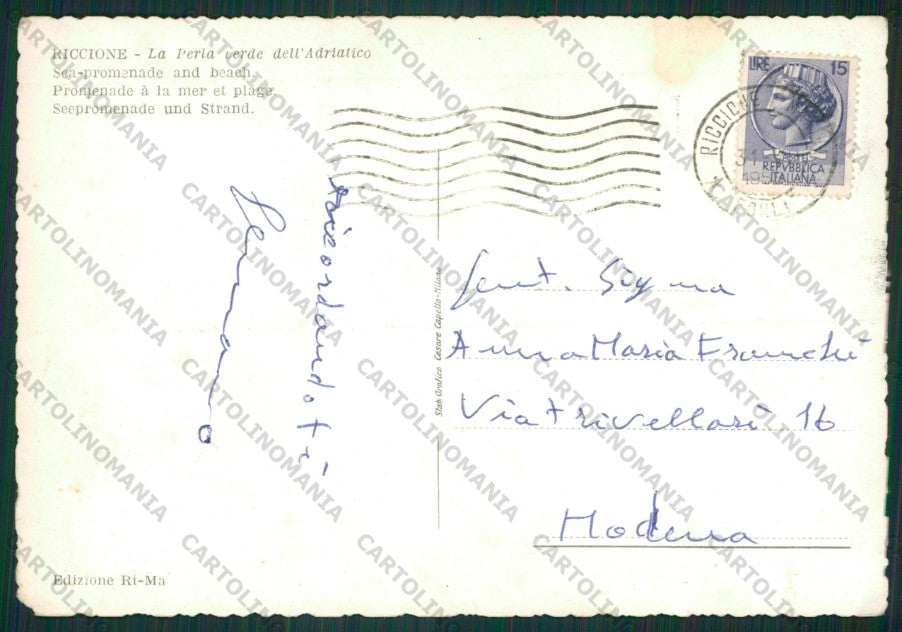 RICCIONE - La Perla verde dell'Adriatico
Sea-promenade and beach.
Promenade à la mer et plage.
Seepromenade und Strand.
LIRE 15
REPVBBLICA
ITALIANA
RICCIONE
ricordandoti
Germano
Gent. Sig.na
Anna Maria Franchi
Via Trivellari 16
Modena
Stab. Grafico Cesare Capello-Milano
Edizione Ri-Ma
CARTOLINOMANIA